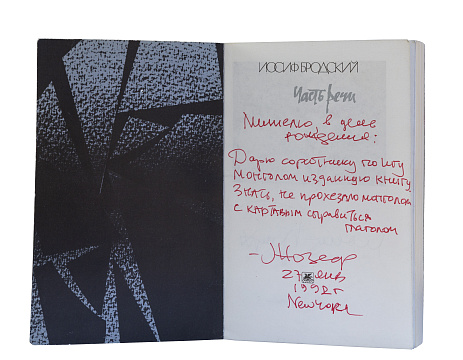 ИОСИФ БРОДСКИЙ
Часть речи
Мишелю, в день
рождения:
Дарю соратнику по игу
монголом изданную книгу.
Знать, не прохезло монголом
с картавым справиться
глаголом
– Жозеф
27 янв
1992 г
New York